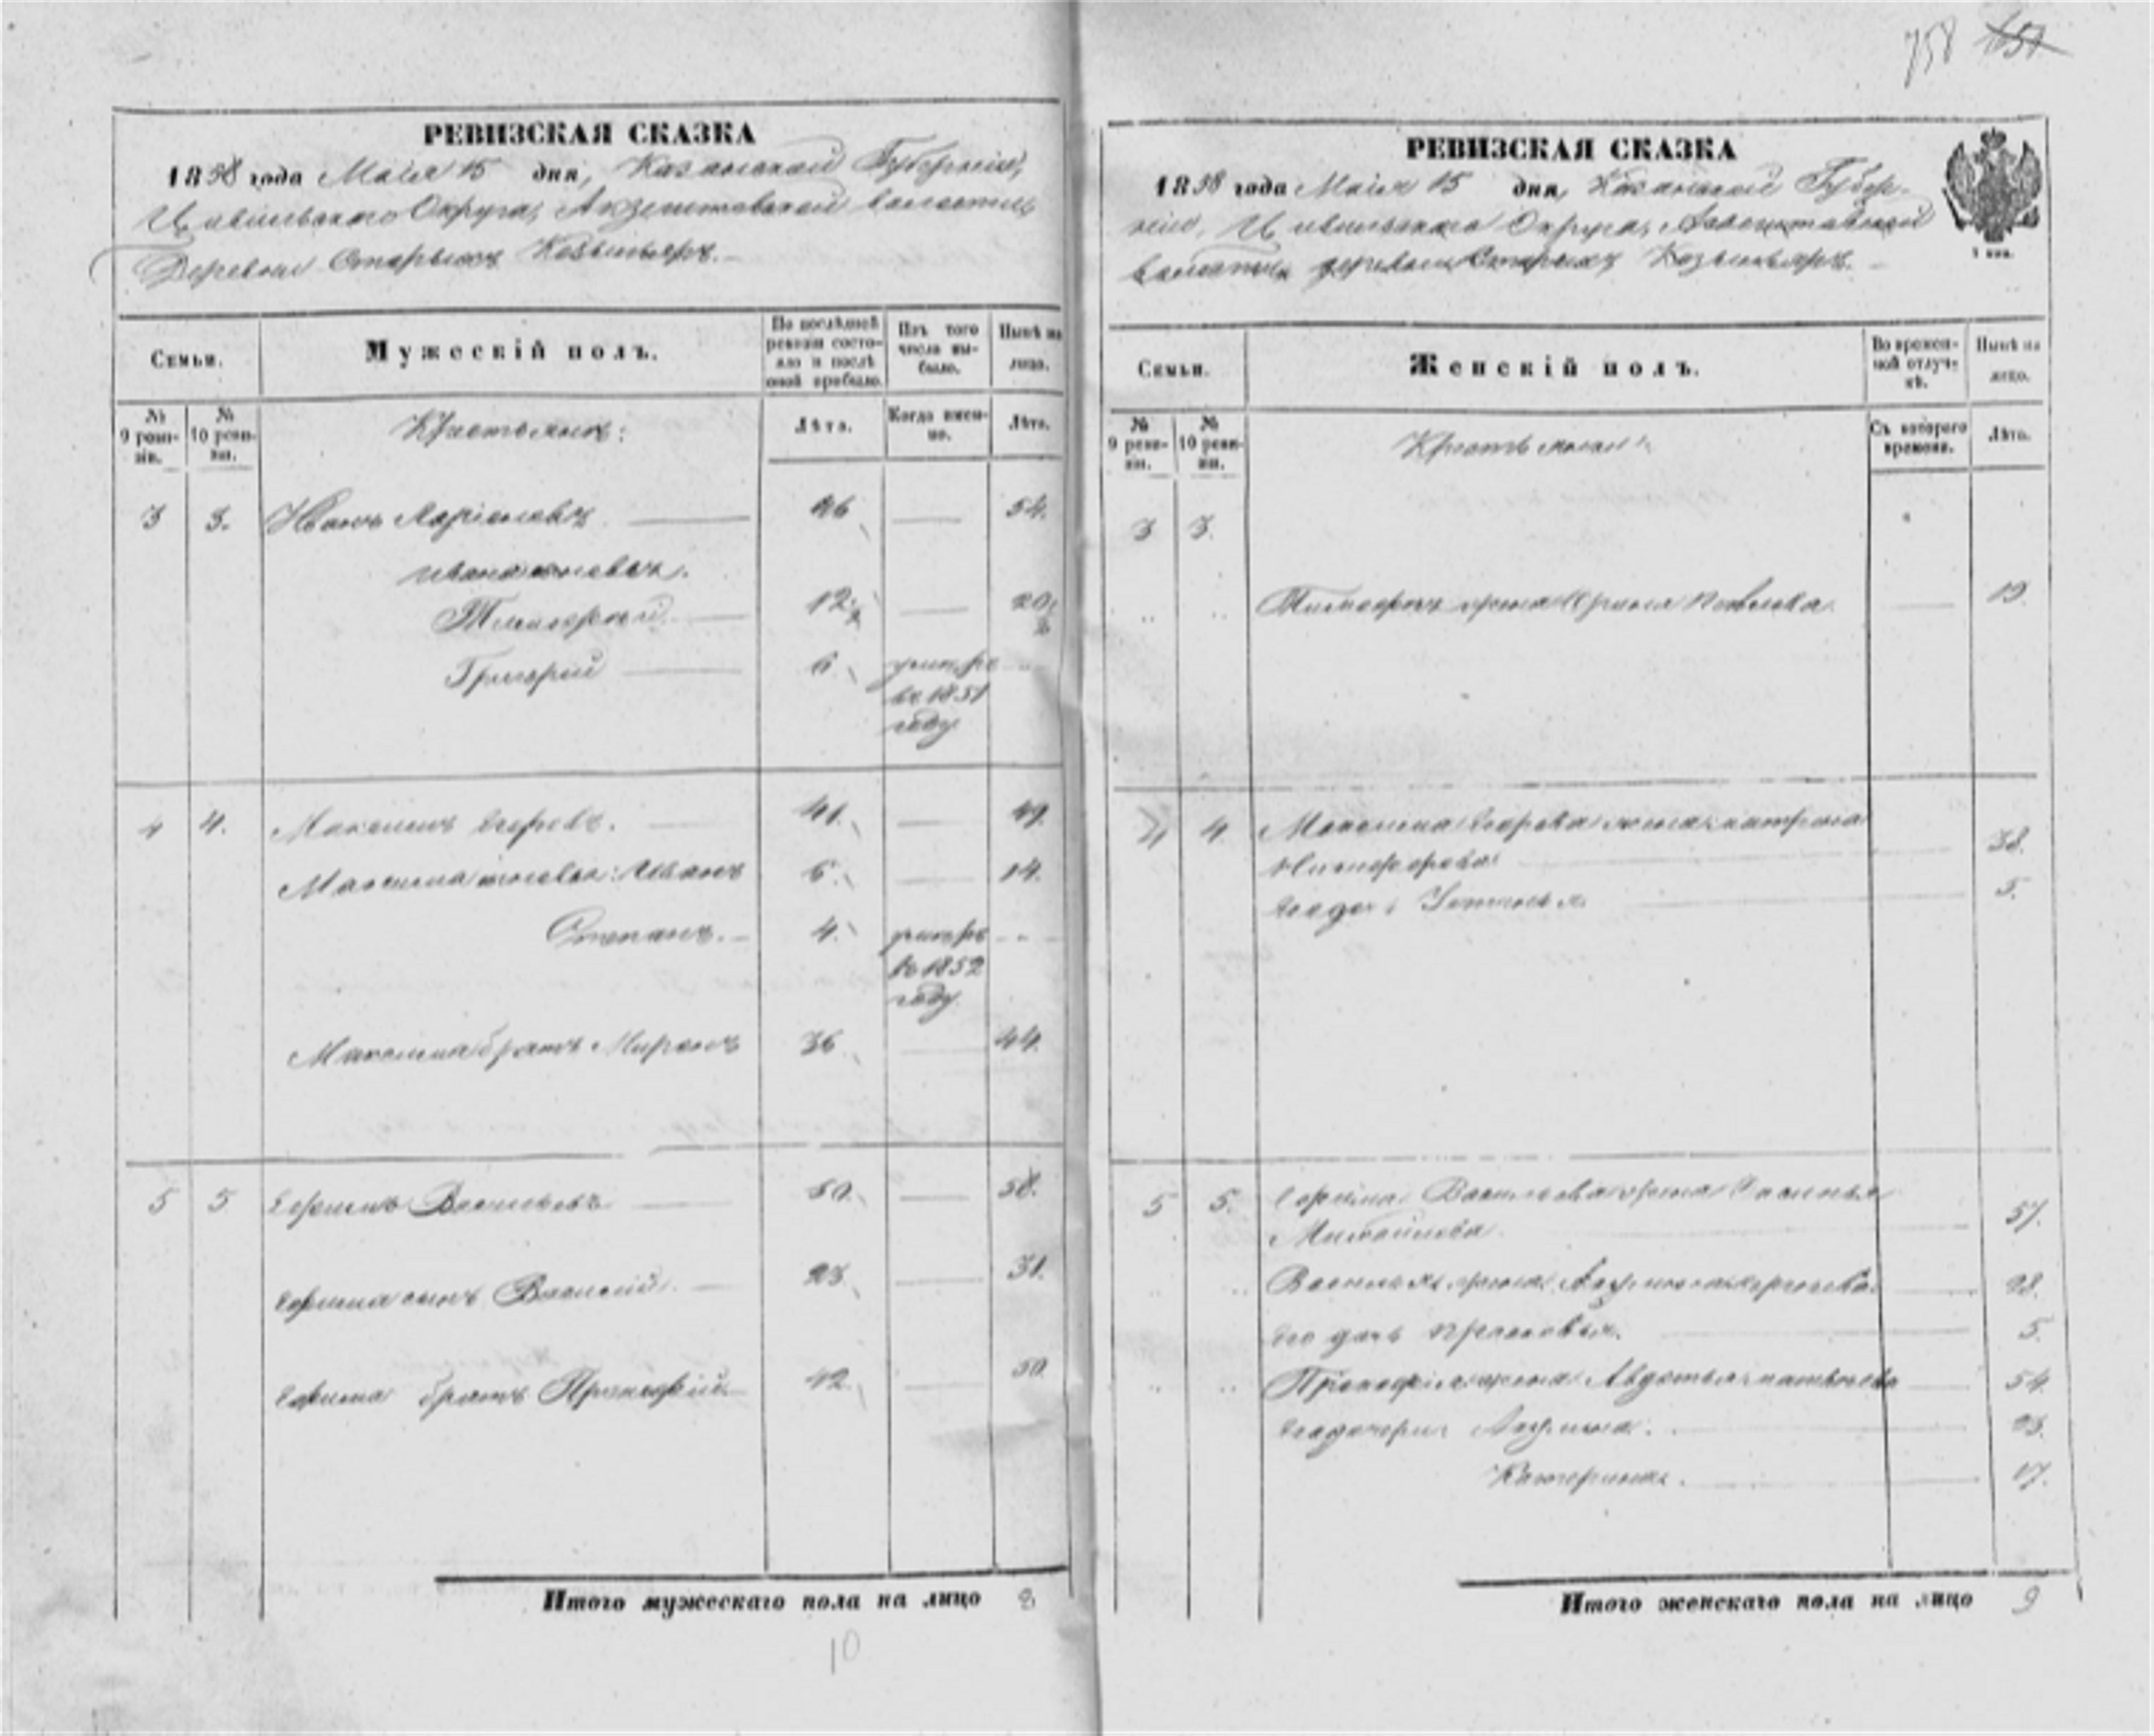 758 651
РЕВИЗСКАЯ СКАЗКА
1858 года Маія 15 дня, Казанской Губерніи,
Цивильскаго Округа, волости,
Деревни Старыхъ
Семьи.
Мужескій полъ.
По послѣдней ревизіи состояло и послѣ оной прибыло.
Изъ того числа выбыло.
Нынѣ на лицо.
№ 9 ревизіи.
№ 10 ревизіи.
Крестьяне:
Лѣта.
Когда именно.
Лѣта.
3 3. Иванъ Ларіоновъ 46 54.
Ивана сыновья.
Тимофей 12. 20.
Григорій 6. умеръ
въ 1851
году
4 4. Максимъ Егоровъ. 41. 49.
Максима сыновья: Иванъ 6. 14.
Степанъ. 4. умеръ
въ 1852
году
Максима братъ Миронъ 36. 44.
5 5 Ефимъ Васильевъ 50. 58.
Ефима сынъ Василій. 23 31.
Ефима братъ Прокофій 42. 50.
Итого мужескаго пола на лицо 8
10
РЕВИЗСКАЯ СКАЗКА
1858 года Маія 15 дня, Казанской Губер-
ніи, Цивильскаго Округа,
волости, деревни Старыхъ
1 коп.
Семьи.
Женскій полъ.
Во временной отлучкѣ.
Нынѣ на лицо.
№ 9 ревизіи.
№ 10 ревизіи.
Крестьянки:
Съ котораго времени.
Лѣта.
3 3.
Тимофея жена Ирина Павлова. 19
4 4. Максима Егорова жена Катрина
Никифорова 38.
Его дочь Устинья 5.
5 5. Ефима Васильева жена
Михайлова. 57.
Василья жена Акулина 28.
Его дочь Прасковья. 5.
Прокофія жена Авдотья Матвѣева 54.
Его дочери Акулина. 23.
Катерина. 17.
Итого женскаго пола на лицо 9